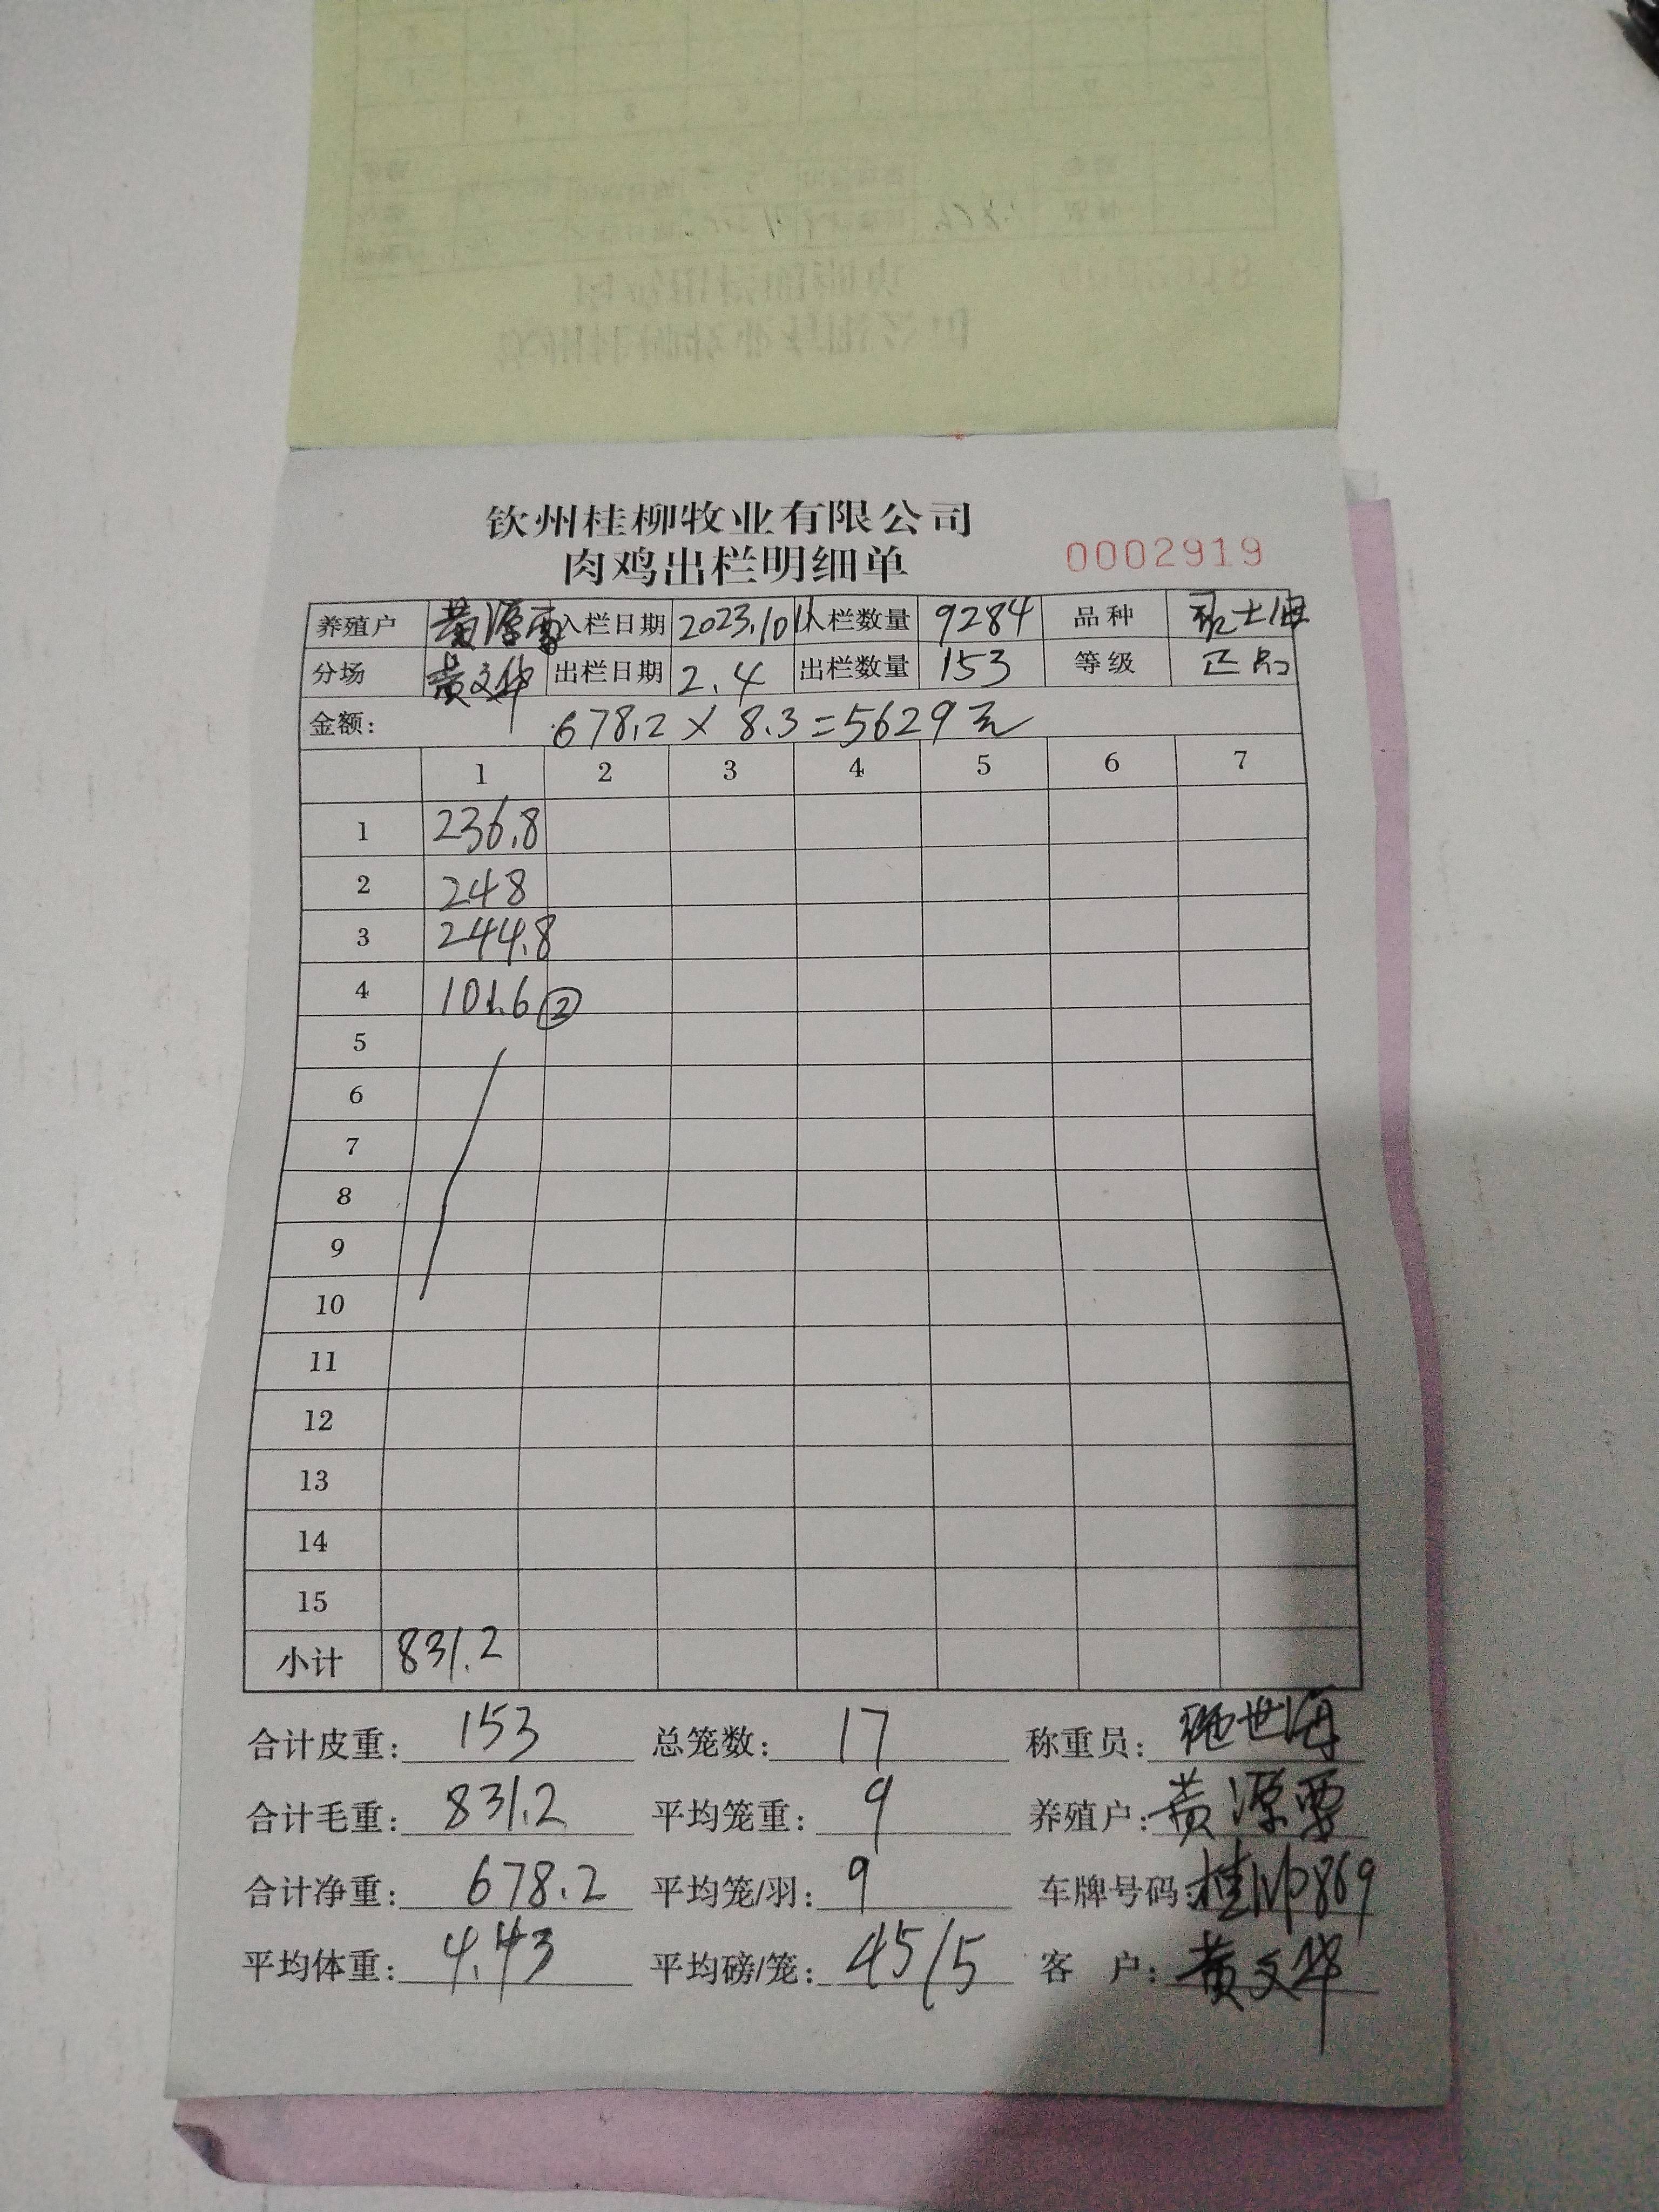 钦州桂柳牧业有限公司
肉鸡出栏明细单 0002919
养殖户 黄源 入栏日期 2023.10 入栏数量 9284 品种
分场 黄文华 出栏日期 2.4 出栏数量 153 等级 正品
金额: 678.2 × 8.3 = 5629元
1 2 3 4 5 6 7
1 236.8
2 248
3 244.8
4 101.6 ②
5
6
7
8
9
10
11
12
13
14
15
小计 831.2
合计皮重: 153 总笼数: 17 称重员: 世海
合计毛重: 831.2 平均笼重: 9 养殖户: 黄源
合计净重: 678.2 平均笼/羽: 9 车牌号码:
平均体重: 4.43 平均磅/笼: 45/5 客 户: 黄文华